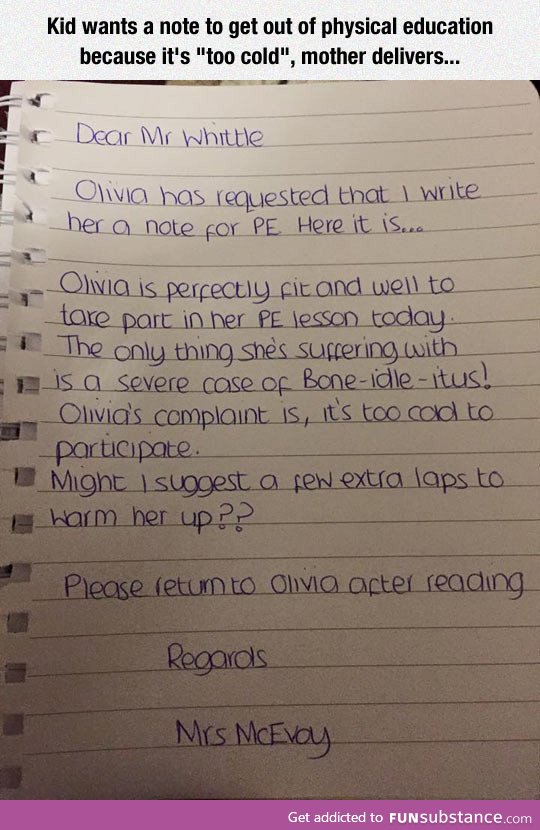 Kid wants a note to get out of physical education
because it's "too cold", mother delivers...
Dear Mr Whittle
Olivia has requested that I write
her a note for PE Here it is...
Olivia is perfectly fit and well to
take part in her PE lesson today.
The only thing she's suffering with
is a severe case of Bone-idle-itus!
Olivia's complaint is, it's too cold to
participate.
Might I suggest a few extra laps to
warm her up??
Please return to Olivia after reading
Regards
Mrs McEvoy
Get addicted to FUNsubstance.com